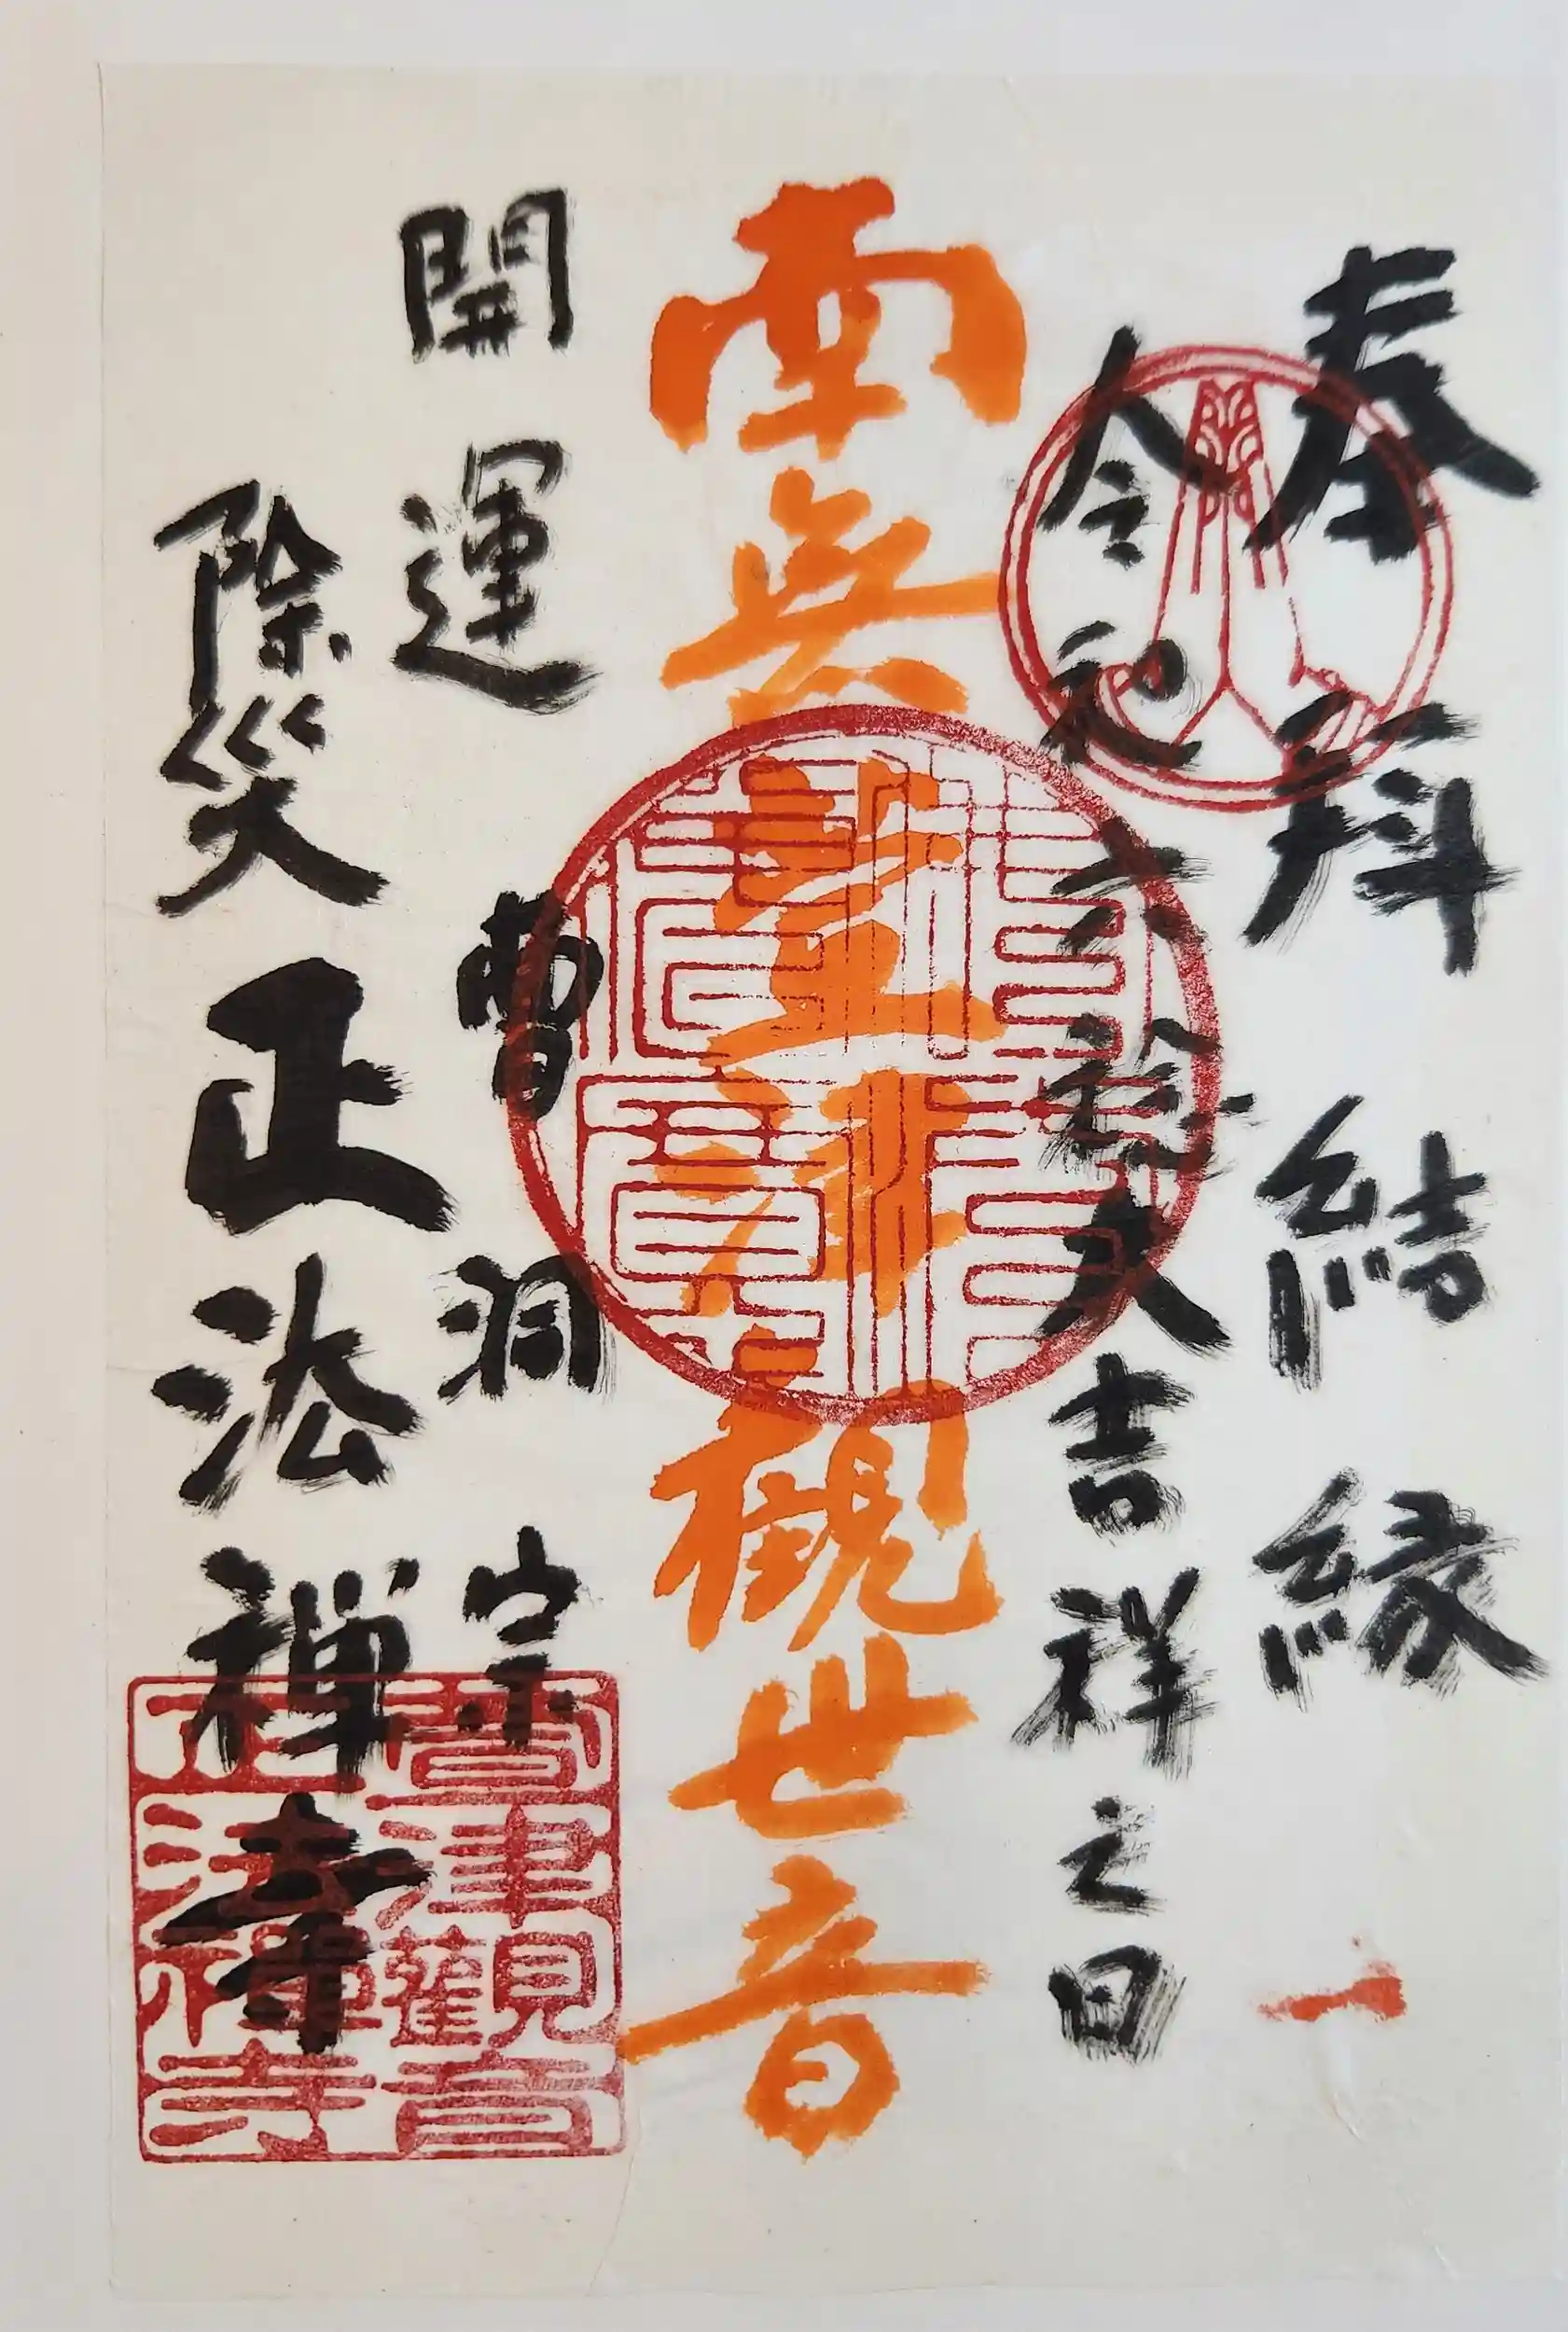 奉拝 結縁
令和六稔大吉祥之日
南無
津
観世音
開運
除災
曹洞宗
正法禅寺
津觀音
正法禅寺